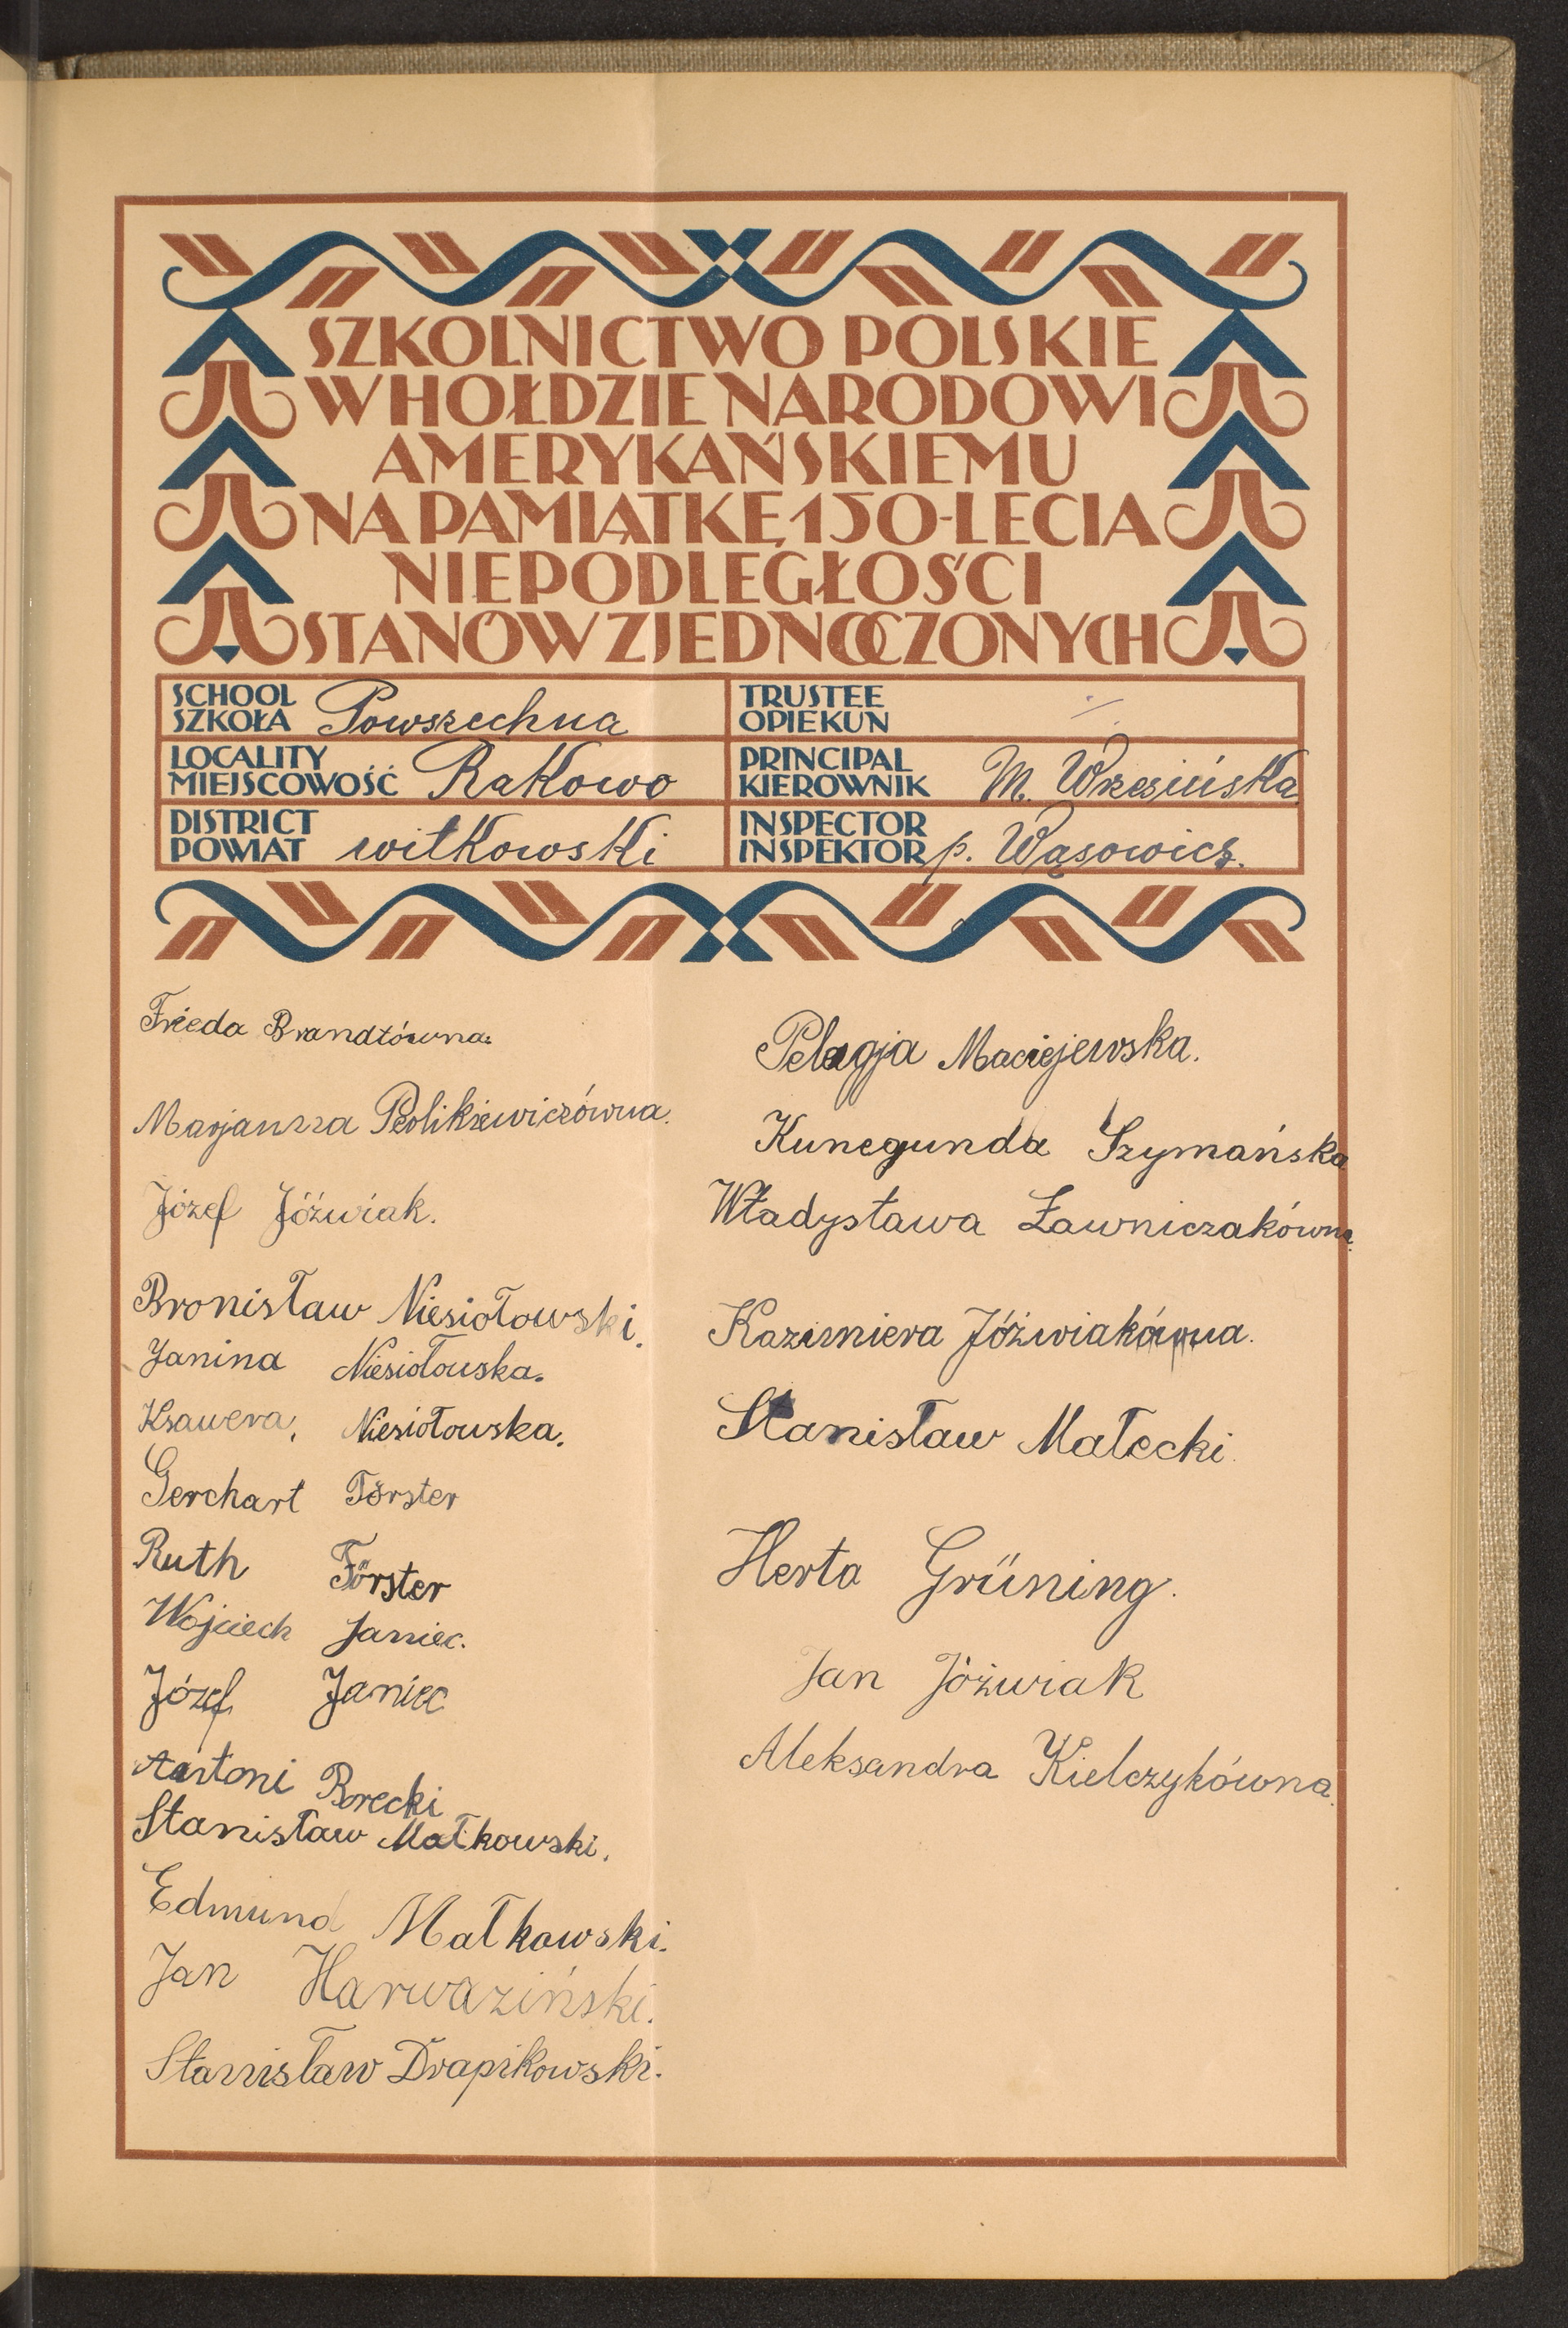 SZKOLNICTWO POLSKIE
W HOŁDZIE NARODOWI
AMERYKAŃSKIEMU
NA PAMIĄTKĘ 150-LECIA
NIEPODLEGŁOŚCI
STANÓW ZJEDNOCZONYCH
SCHOOL
SZKOŁA Powszechna
TRUSTEE
OPIEKUN
LOCALITY
MIEJSCOWOŚĆ Rakowo
PRINCIPAL
KIEROWNIK M. Wrzesińska
DISTRICT
POWIAT witkowski
INSPECTOR
INSPEKTOR p. Wąsowicz.
Frieda Brandtówna.
Marjanna
Józef Jóźwiak.
Bronisław Niesiołowski.
Janina Niesiołowska.
Ksawera, Niesiołowska.
Gerchart Förster
Ruth Förster
Wojciech Janiec.
Józef Janiec
Antoni Borecki
Stanisław Małkowski.
Edmund Małkowski.
Jan Harwaziński.
Stanisław Drapikowski.
Pelagja Maciejewska.
Kunegunda Szymańska
Władysława Ławniczakówna.
Kazimiera Jóźwiakówna.
Stanisław Małecki.
Herta Grüning.
Jan Jóżwiak
Aleksandra Kielczykówna.